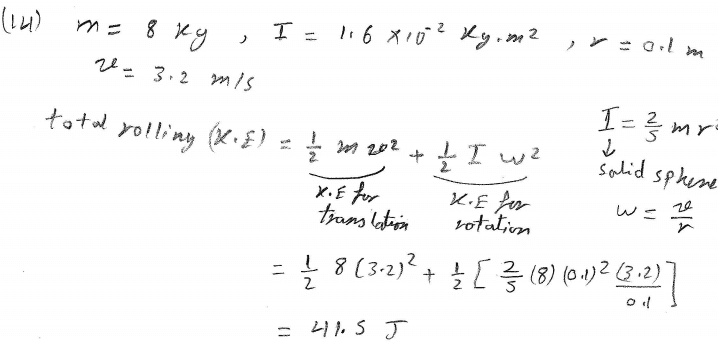 (14) m = 8 kg , I = 1.6 × 10⁻² kg.m² , r = 0.1 m
v = 3.2 m/s
total rolling (K.E) = ½ m v² + ½ I ω²
K.E for translation
K.E for rotation
I = ⅖ m r²
↓
solid sphere
ω = v/r
= ½ 8 (3.2)² + ½ [ ⅖ (8) (0.1)² (3.2)/0.1 ]
= 41.5 J